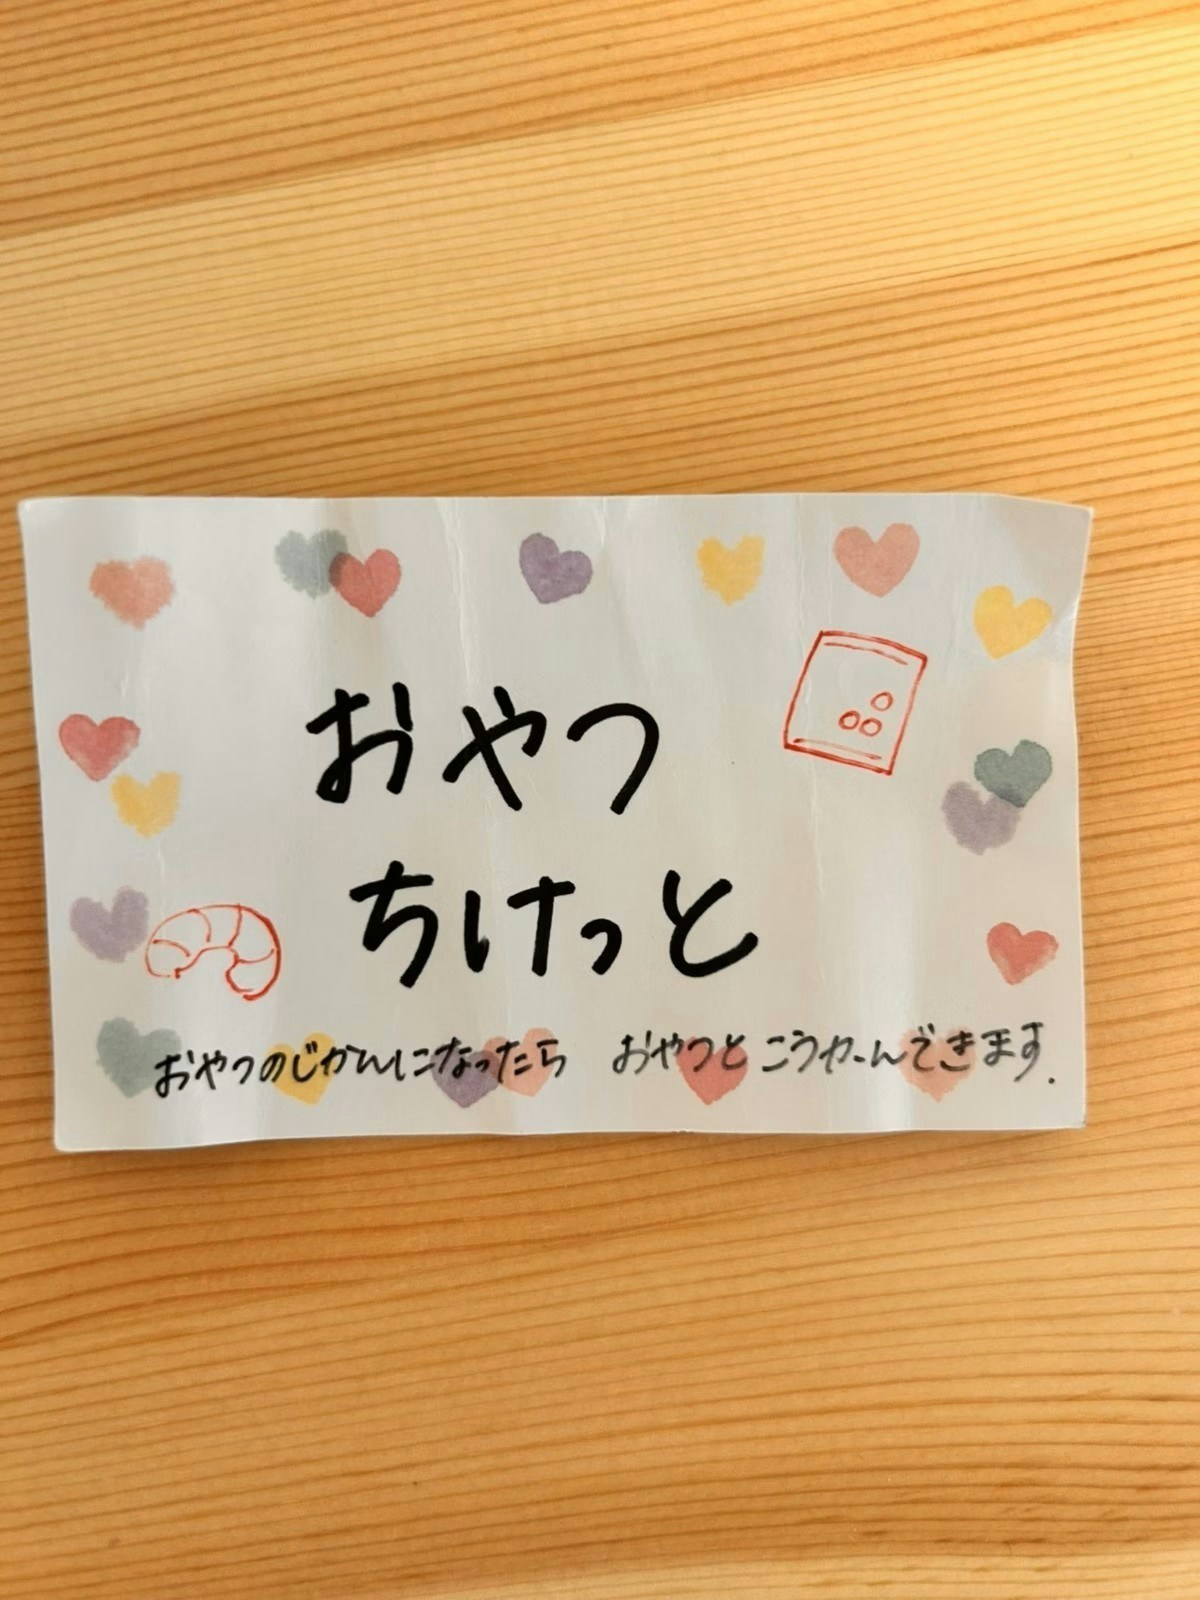 おやつ
ちけっと
おやつのじかんになったら　おやつと こうかーんできます.